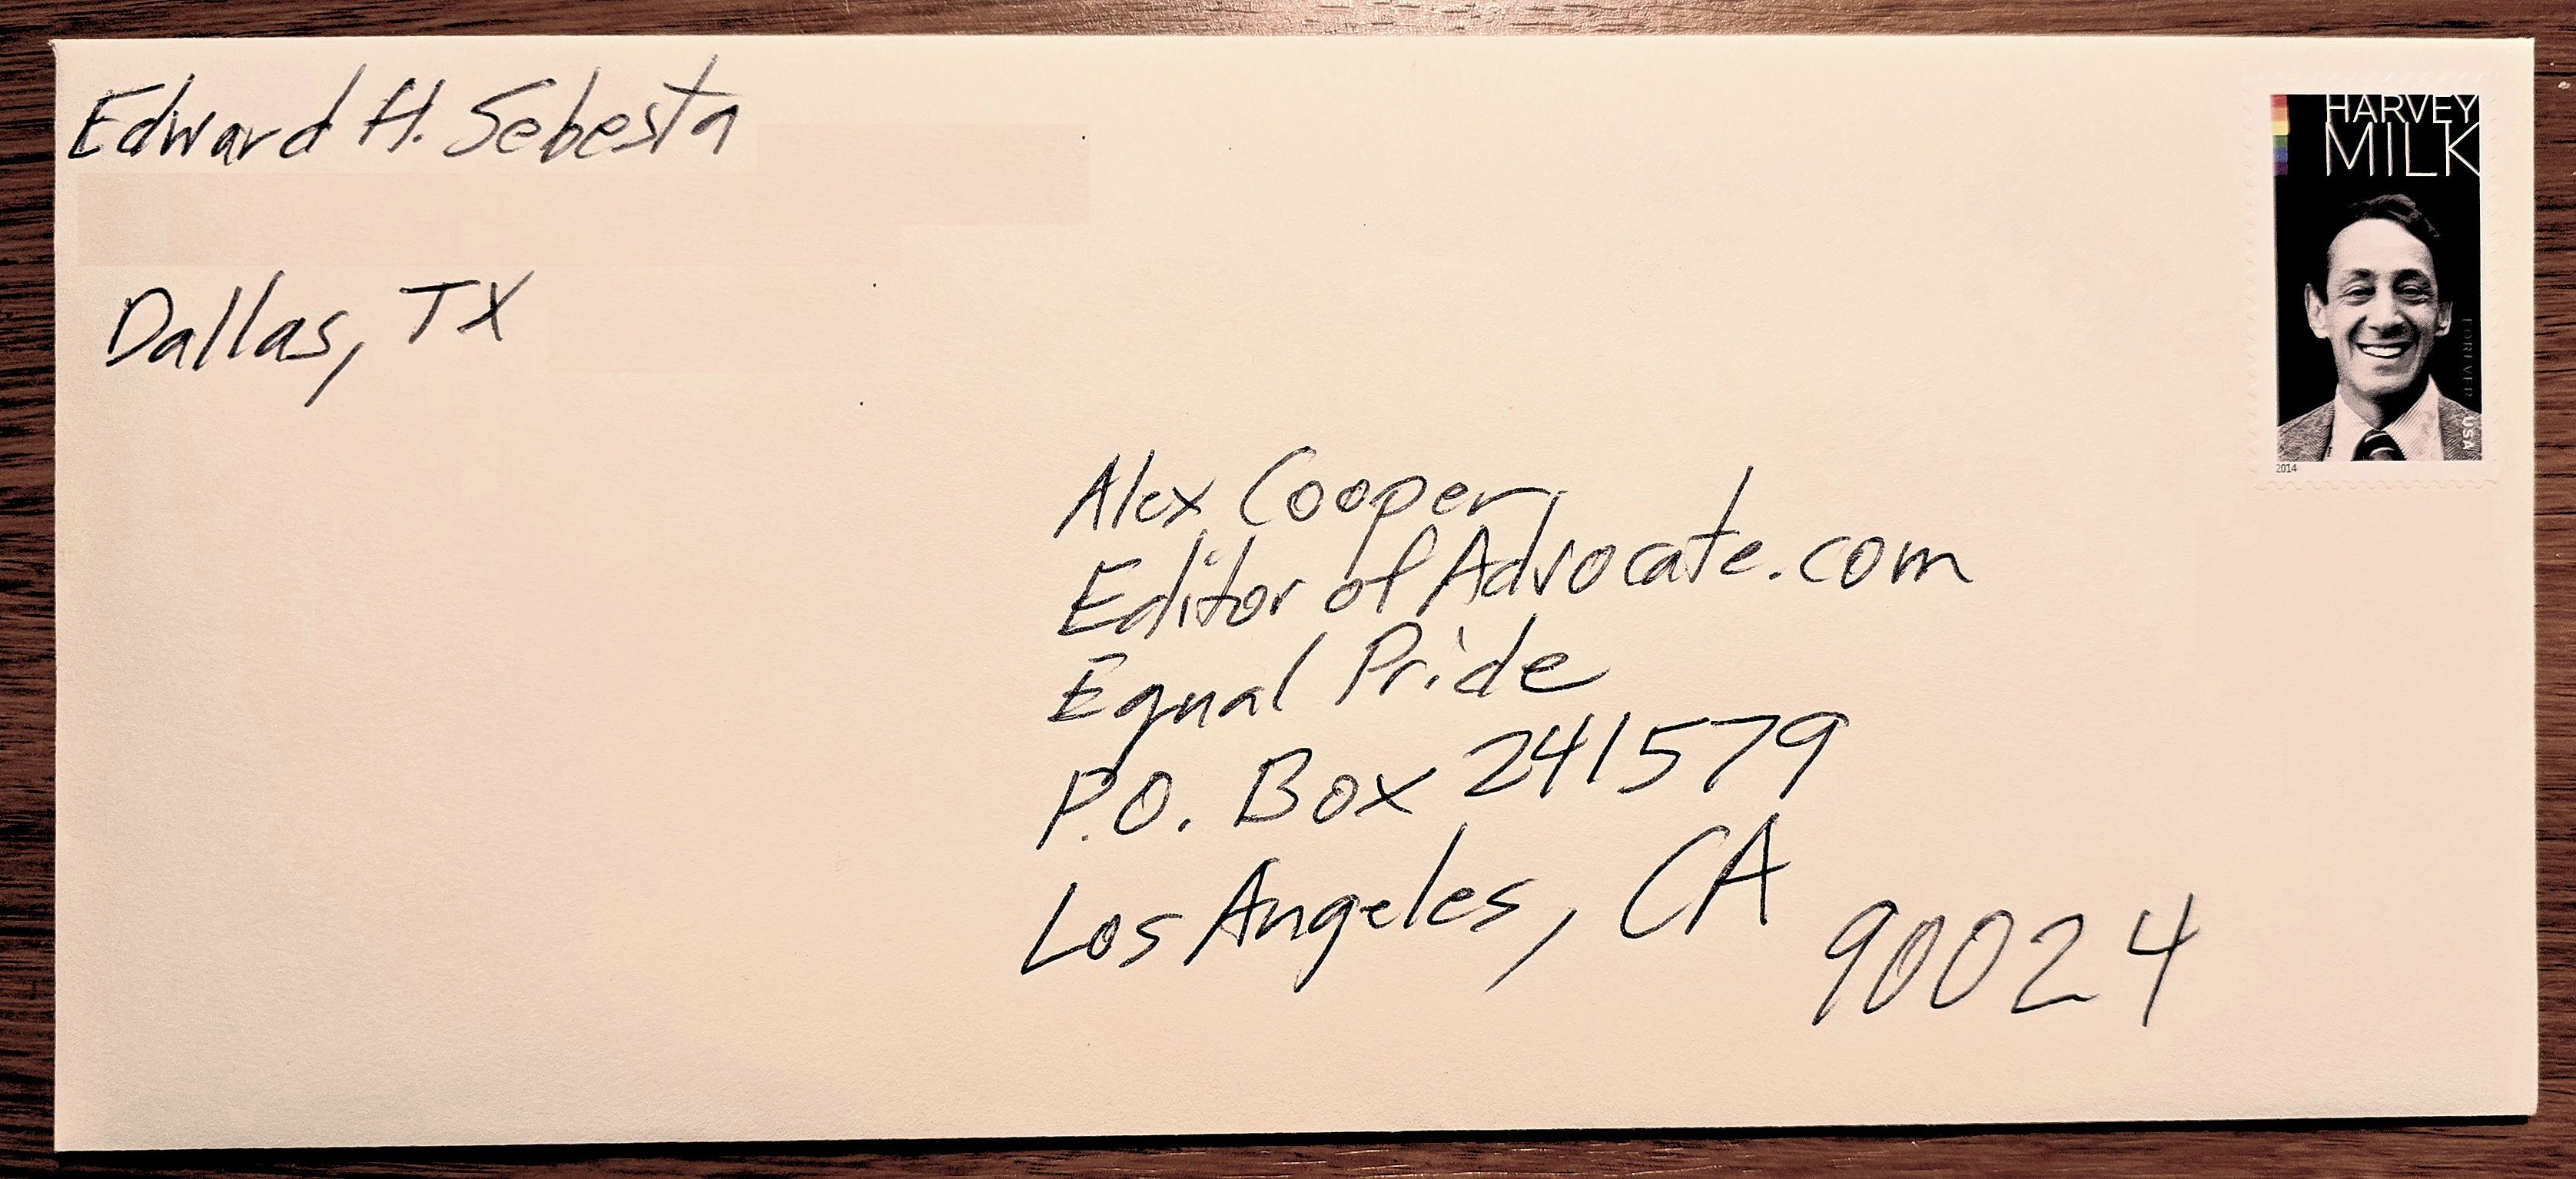 Edward H. Sebesta
Dallas, TX
HARVEY
MILK
FOREVER USA
2014
Alex Cooper,
Editor of Advocate.com
Equal Pride
P.O. Box 241579
Los Angeles, CA
90024